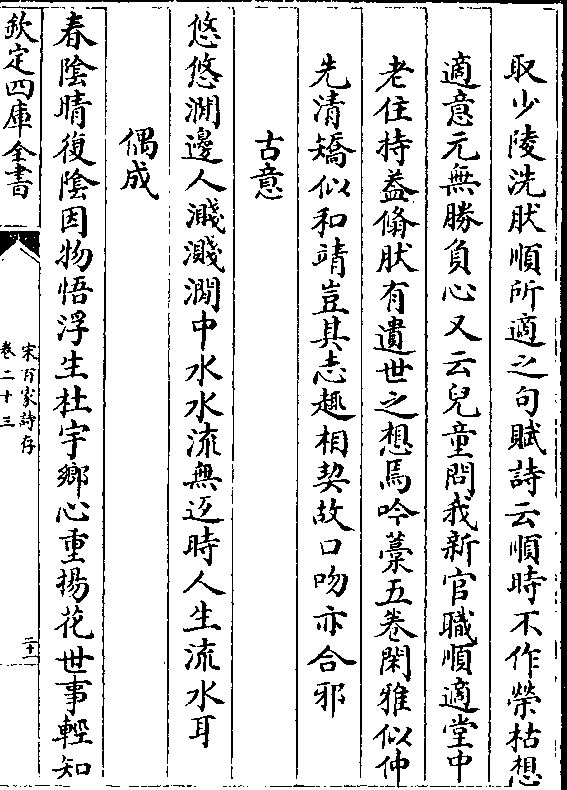 取少陵洗然順所適之句賦詩云順時不作榮枯想
適意元無勝負心又云兒童問我新官職順適堂中
老住持蓋翛然有遺世之想焉吟藁五卷閑雅似仲
先清矯似和靖豈其志趣相契故口吻亦合邪
古意
悠悠澗邊人濺濺澗中水水流無迈時人生流水耳
偶成
春陰晴復陰因物悟浮生杜宇鄉心重楊花世事輕知
欽定四庫全書
宋百家詩存
卷二十三
二十一